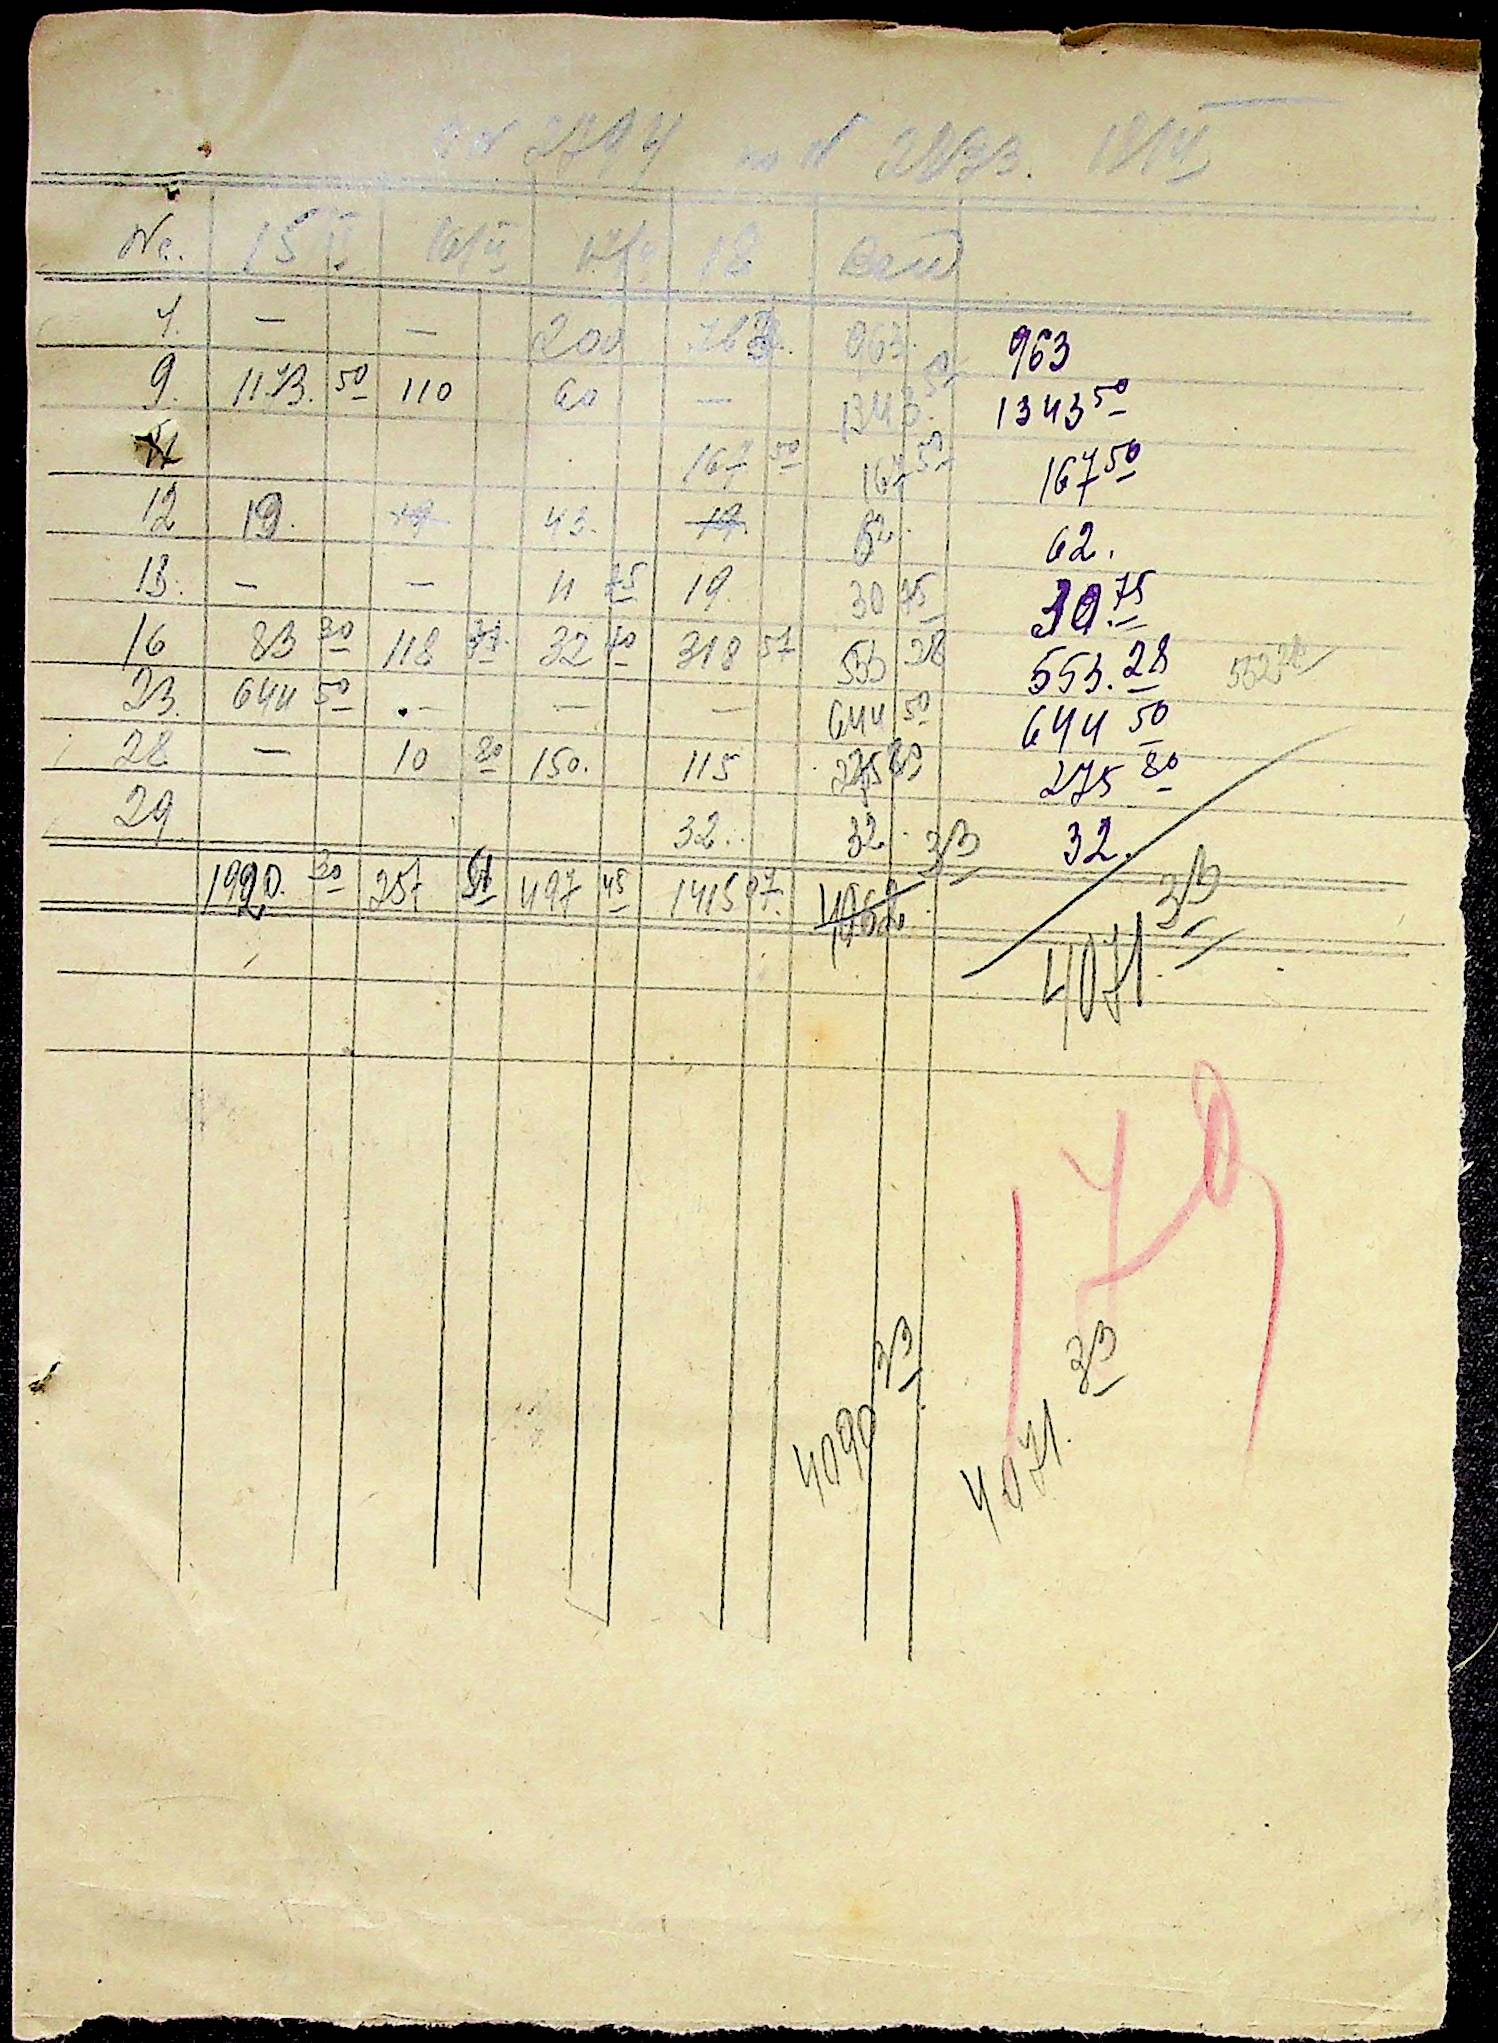 № 2794 по № 2873. 18/IV
№. 15/II 16/II 17/II 18 Всего
7. — — 200 763. 963. 963
9. 1173. 50 110 60 — 1343. 50 1343 50
167 50 167 50 167 50
12 19. 19 43. 19. 62. 62.
13. — — 11 75 19. 30 75 30.75
16 83 30 118 32 40 318 57 553 28 553.28 552 28
23. 644 50 — — — 644 50 644 50
28 — 10 80 150. 115 275 80 275 80
29 32. 32 32.
1920. 30 257 497 45 1415 07. 4062. 33
4071. 33
170
4090 33
4071. 33